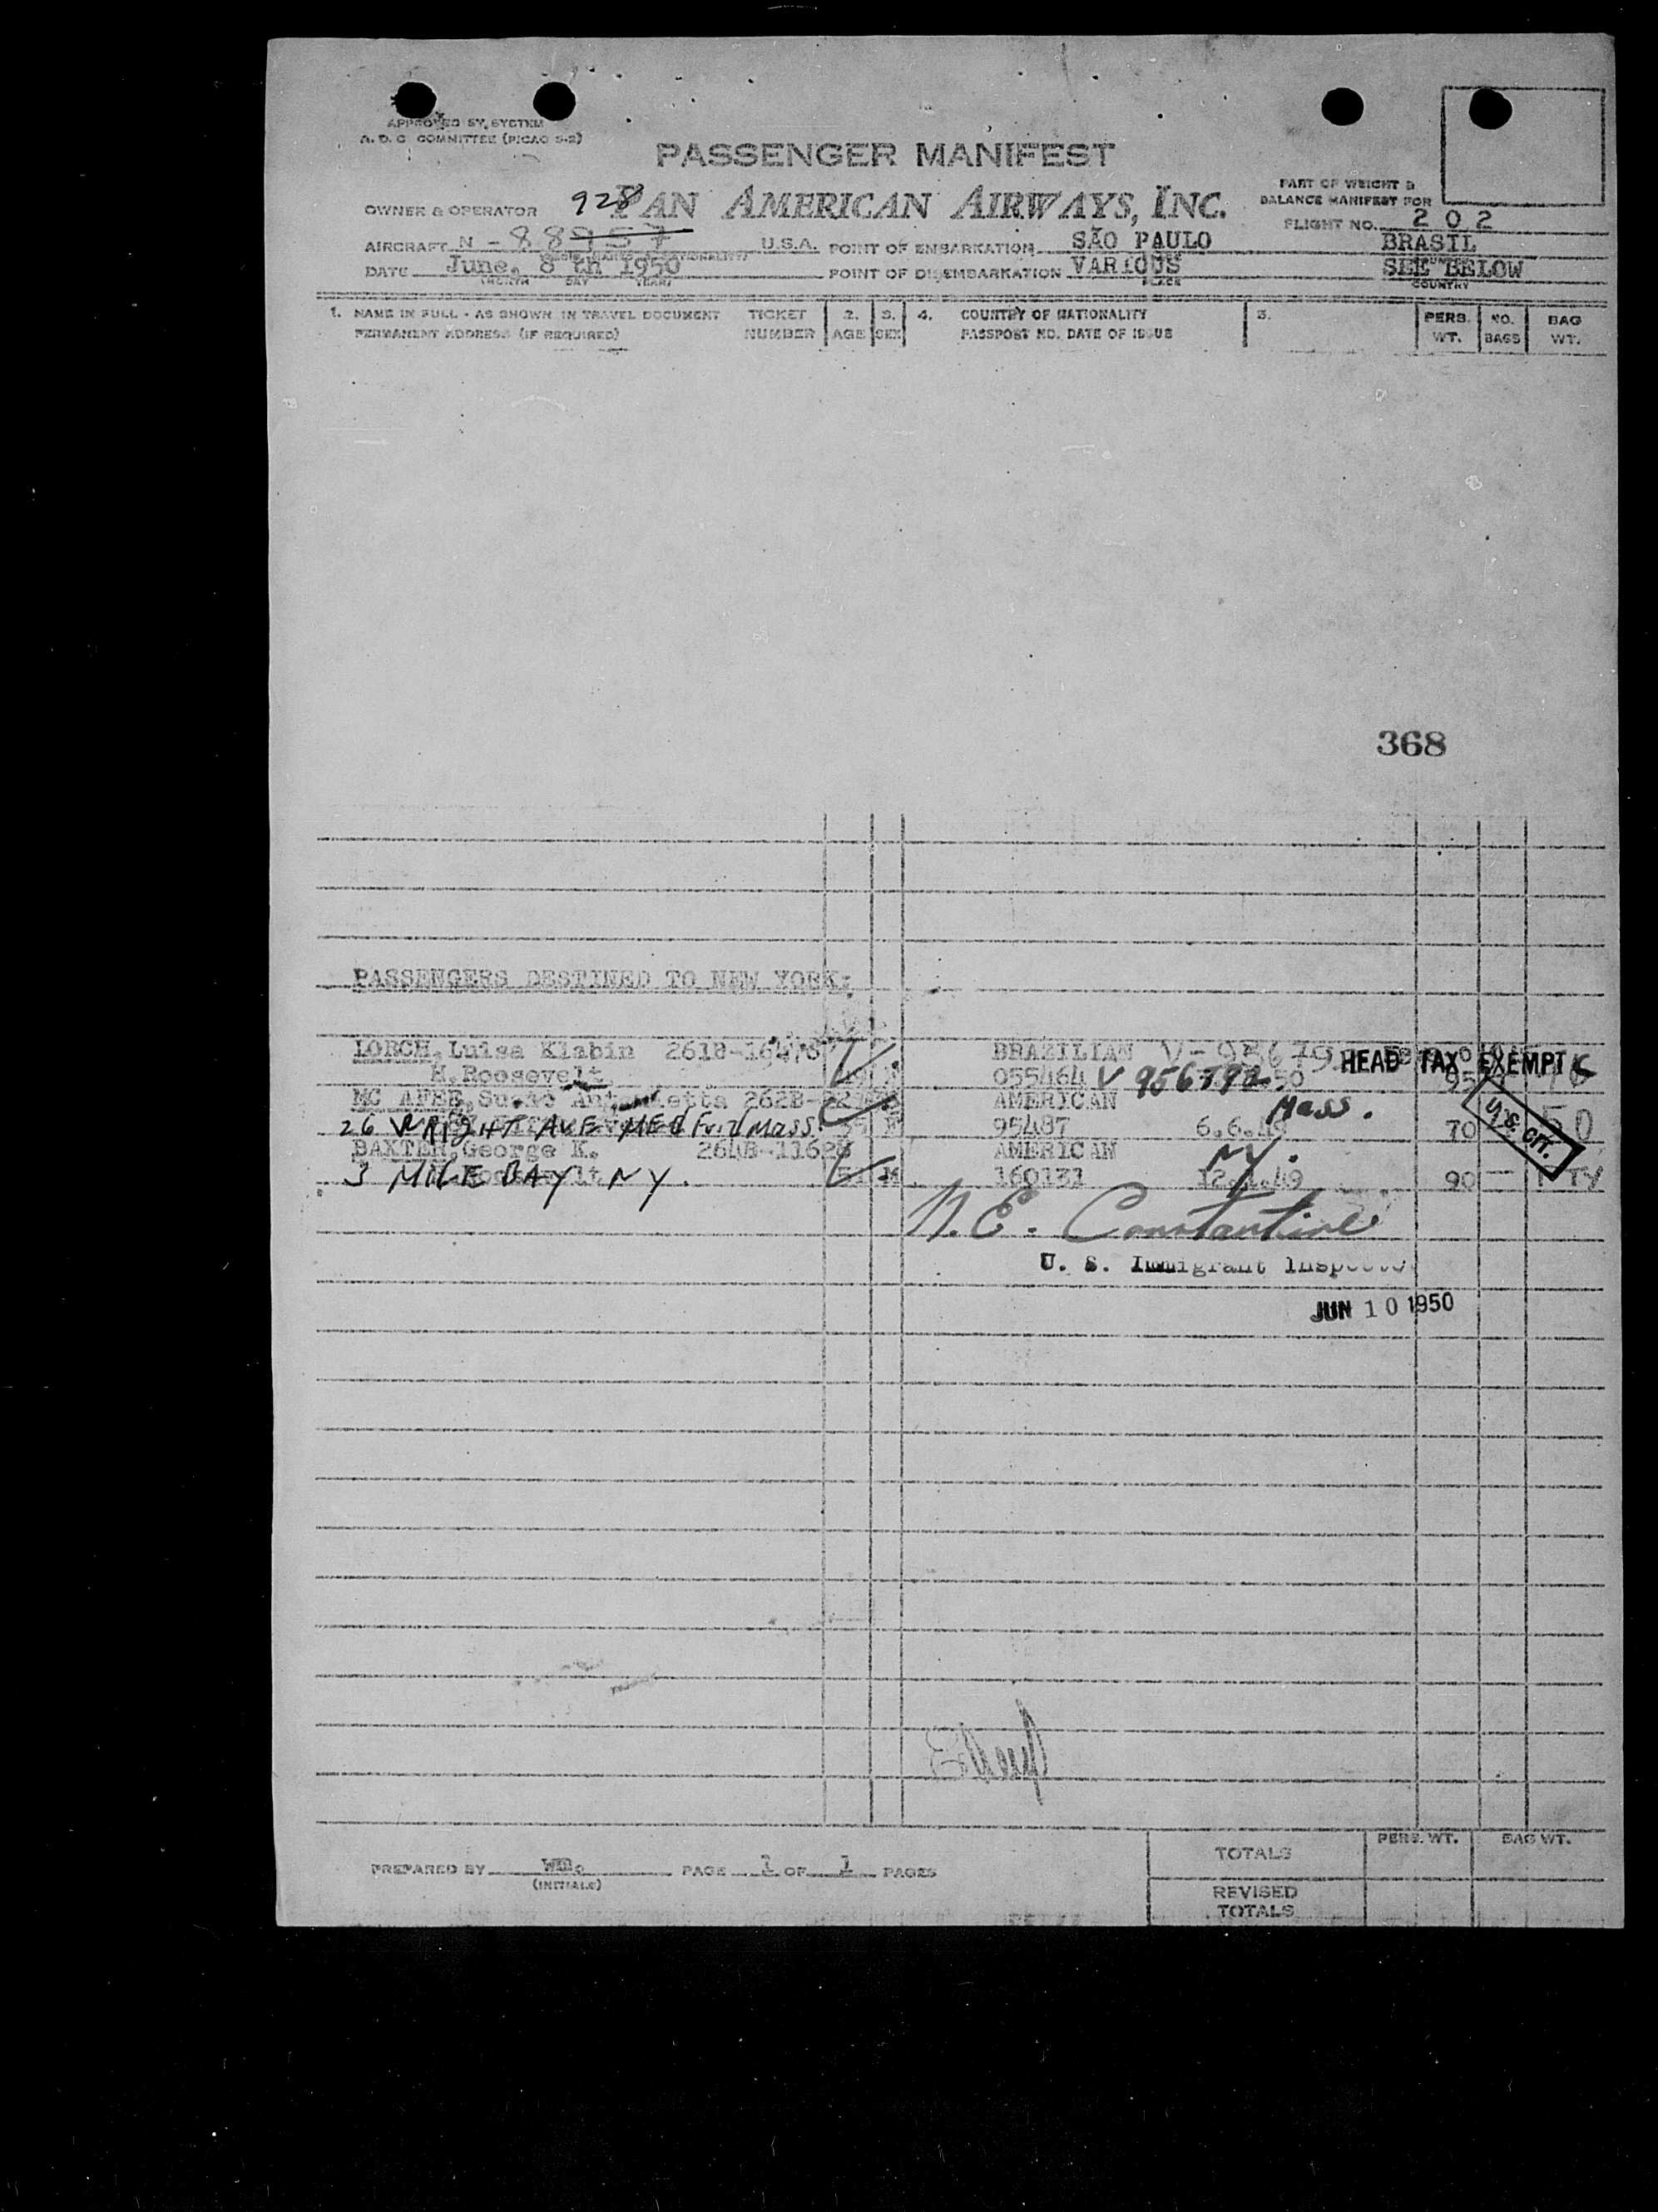 APPROVED BY SYSTEM
A. D. C COMMITTEE (PICAO S-2)
PASSENGER MANIFEST
OWNER & OPERATOR 928 PAN AMERICAN AIRWAYS, INC.
PART OF WEIGHT &
BALANCE MANIFEST FOR
FLIGHT NO. 202
AIRCRAFT N-88957 U.S.A. POINT OF EMBARKATION SÃO PAULO BRASIL
DATE June, 8 th 1950 POINT OF DISEMBARKATION VARIOUS SEE BELOW
(MONTH DAY YEAR) PLACE COUNTRY
1. NAME IN FULL - AS SHOWN IN TRAVEL DOCUMENT TICKET 2. 3. 4. COUNTRY OF NATIONALITY 5. PERS. NO. BAG
PERMANENT ADDRESS (IF REQUIRED) NUMBER AGE SEX PASSPORT NO. DATE OF ISSUE WT. BAGS WT.
368
PASSENGERS DESTINED TO NEW YORK:
LORCH, Luisa Klabin BRAZILIAN
H.Roosevelt 055464 V 956792 HEAD TAX EXEMPT
MC AFEE, Antonietta 262B- AMERICAN Mass.
26 WRIGHT AVE MEDford Mass. 95487 6.6. 70 U.S. CIT. 50
BAXTER, George K. 264B-11628 AMERICAN NY.
3 MILE BAY NY. M 160131 12.1.49 90
N.E. Constantine
U. S. Immigrant Inspector
JUN 10 1950
PREPARED BY WB. PAGE 1 OF 1 PAGES
(INITIALS)
TOTALS PERS. WT. BAG WT.
REVISED
TOTALS